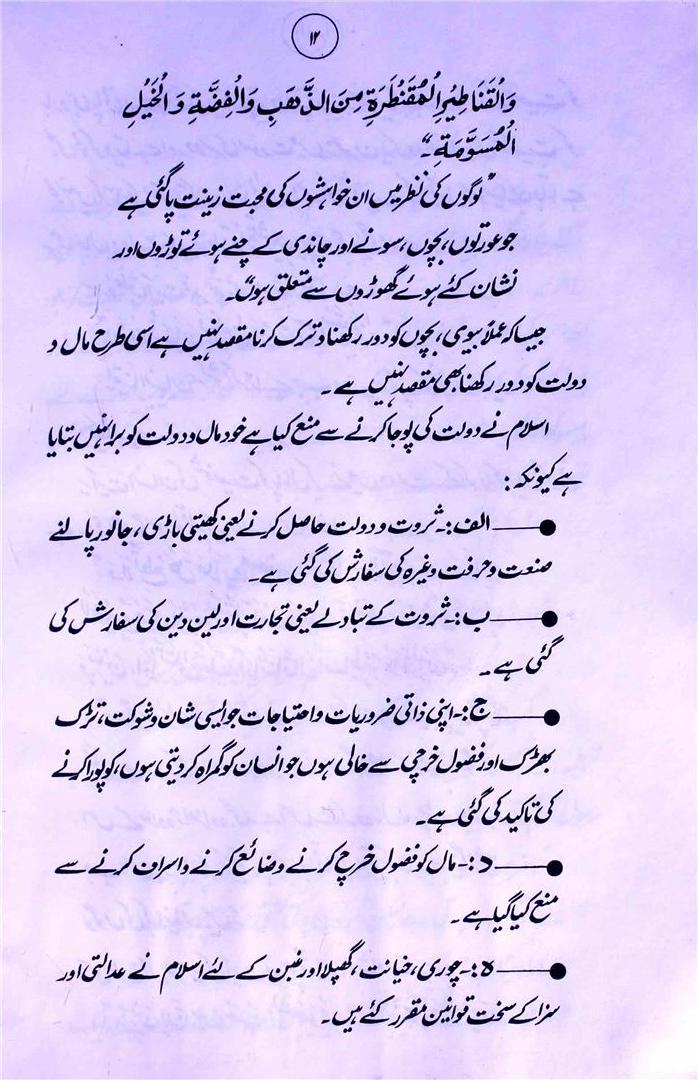 ۱۲
وَالْقَنَاطِيرِ الْمُقَنْطَرَةِ مِنَ الذَّهَبِ وَالْفِضَّةِ وَالْخَيْلِ
الْمُسَوَّمَةِ۔“
”لوگوں کی نظر میں ان خواہشوں کی محبت زینت پا گئی ہے
جو عورتوں، بچوں، سونے اور چاندی کے چنے ہوئے توڑوں اور
نشان کئے ہوئے گھوڑوں سے متعلق ہوں“۔
جیسا کہ عملاً بیوی، بچوں کو دور رکھنا و ترک کرنا مقصد نہیں ہے اسی طرح مال و
دولت کو دور رکھنا بھی مقصد نہیں ہے۔
اسلام نے دولت کی پوجا کرنے سے منع کیا ہے خود مال و دولت کو برا نہیں بتایا
ہے کیونکہ:
●—— الف:۔ ثروت و دولت حاصل کرنے یعنی کھیتی باڑی، جانور پالنے
صنعت و حرفت وغیرہ کی سفارش کی گئی ہے۔
●—— ب:۔ ثروت کے تبادلے یعنی تجارت اور لین دین کی سفارش کی
گئی ہے۔
●—— ج:۔ اپنی ذاتی ضروریات و احتیاجات جو ایسی شان و شوکت، تڑک
بھڑک اور فضول خرچی سے خالی ہوں جو انسان کو گمراہ کر دیتی ہوں، کو پورا کرنے
کی تاکید کی گئی ہے۔
●—— د:۔ مال کو فضول خرچ کرنے و ضائع کرنے و اسراف کرنے سے
منع کیا گیا ہے۔
●—— ہ:۔ چوری، خیانت، گھپلا اور غبن کے لئے اسلام نے عدالتی اور
سزا کے سخت قوانین مقرر کئے ہیں۔